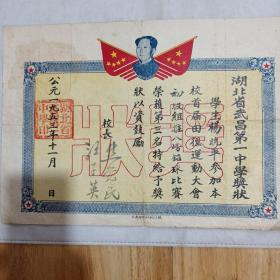 湖北省武昌第一中學獎狀
學生楊斌平參加本
校首屆田徑運動大會
初級組推八磅鉛球比賽
榮獲第三名特給予獎
狀以資鼓勵
校長
公元一九五三年十一月 日
獎狀